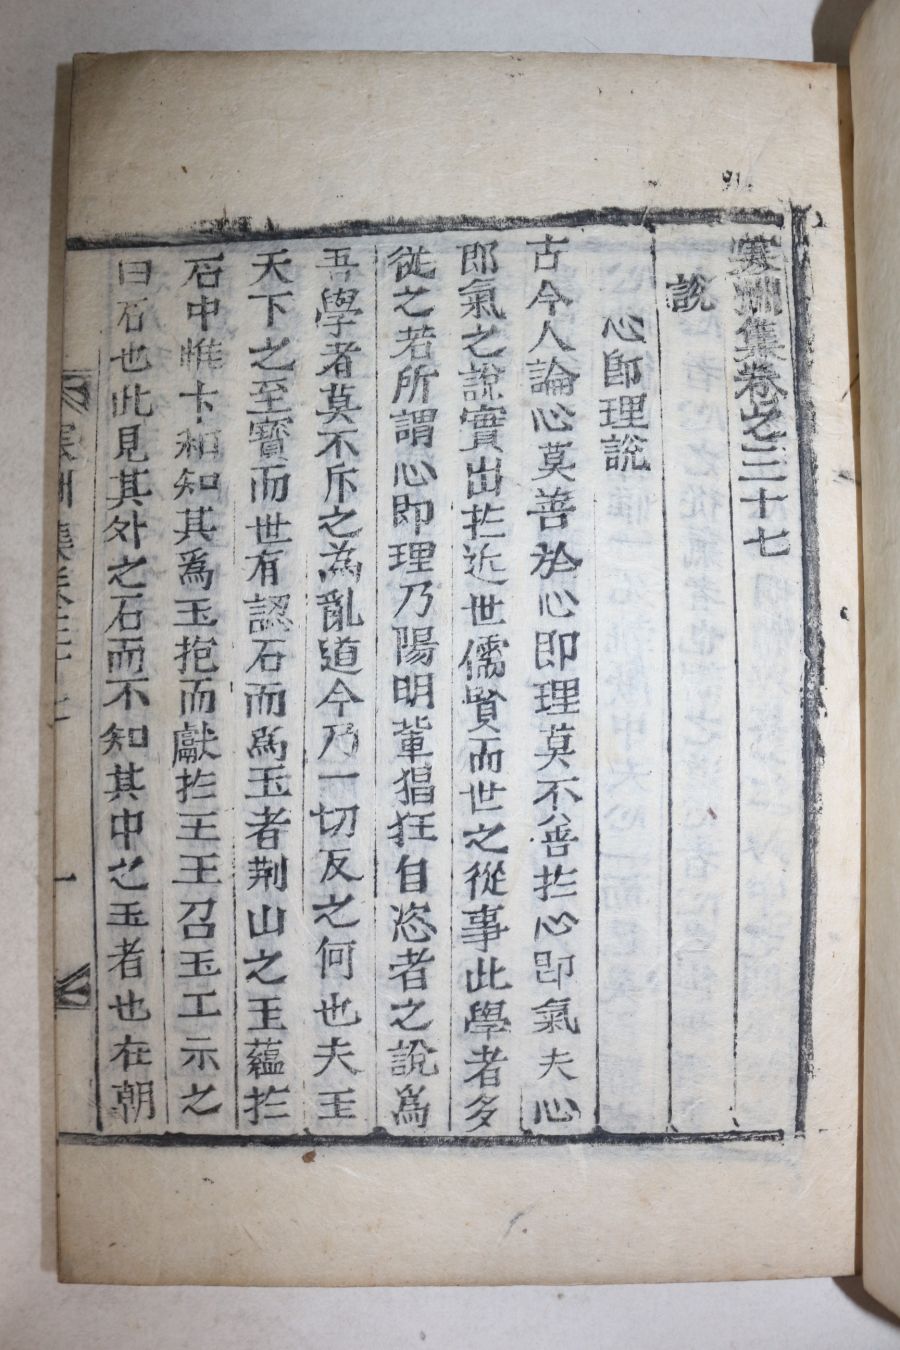 寒洲集卷之三十七
說
心即理說
古今人論心莫善於心即理莫不善扵心即氣夫心
即氣之說實出扵近世儒賢而世之從事此學者多
從之若所謂心即理乃陽明輩猖狂自恣者之說爲
吾學者莫不斥之為亂道今乃一切反之何也夫玉
天下之至寶而世有認石而爲玉者荆山之玉蘊扵
石中惟卞和知其爲玉抱而獻扵王王召玉工示之
曰石也此見其外之石而不知其中之玉者也在朝
寒洲集卷三十七
一